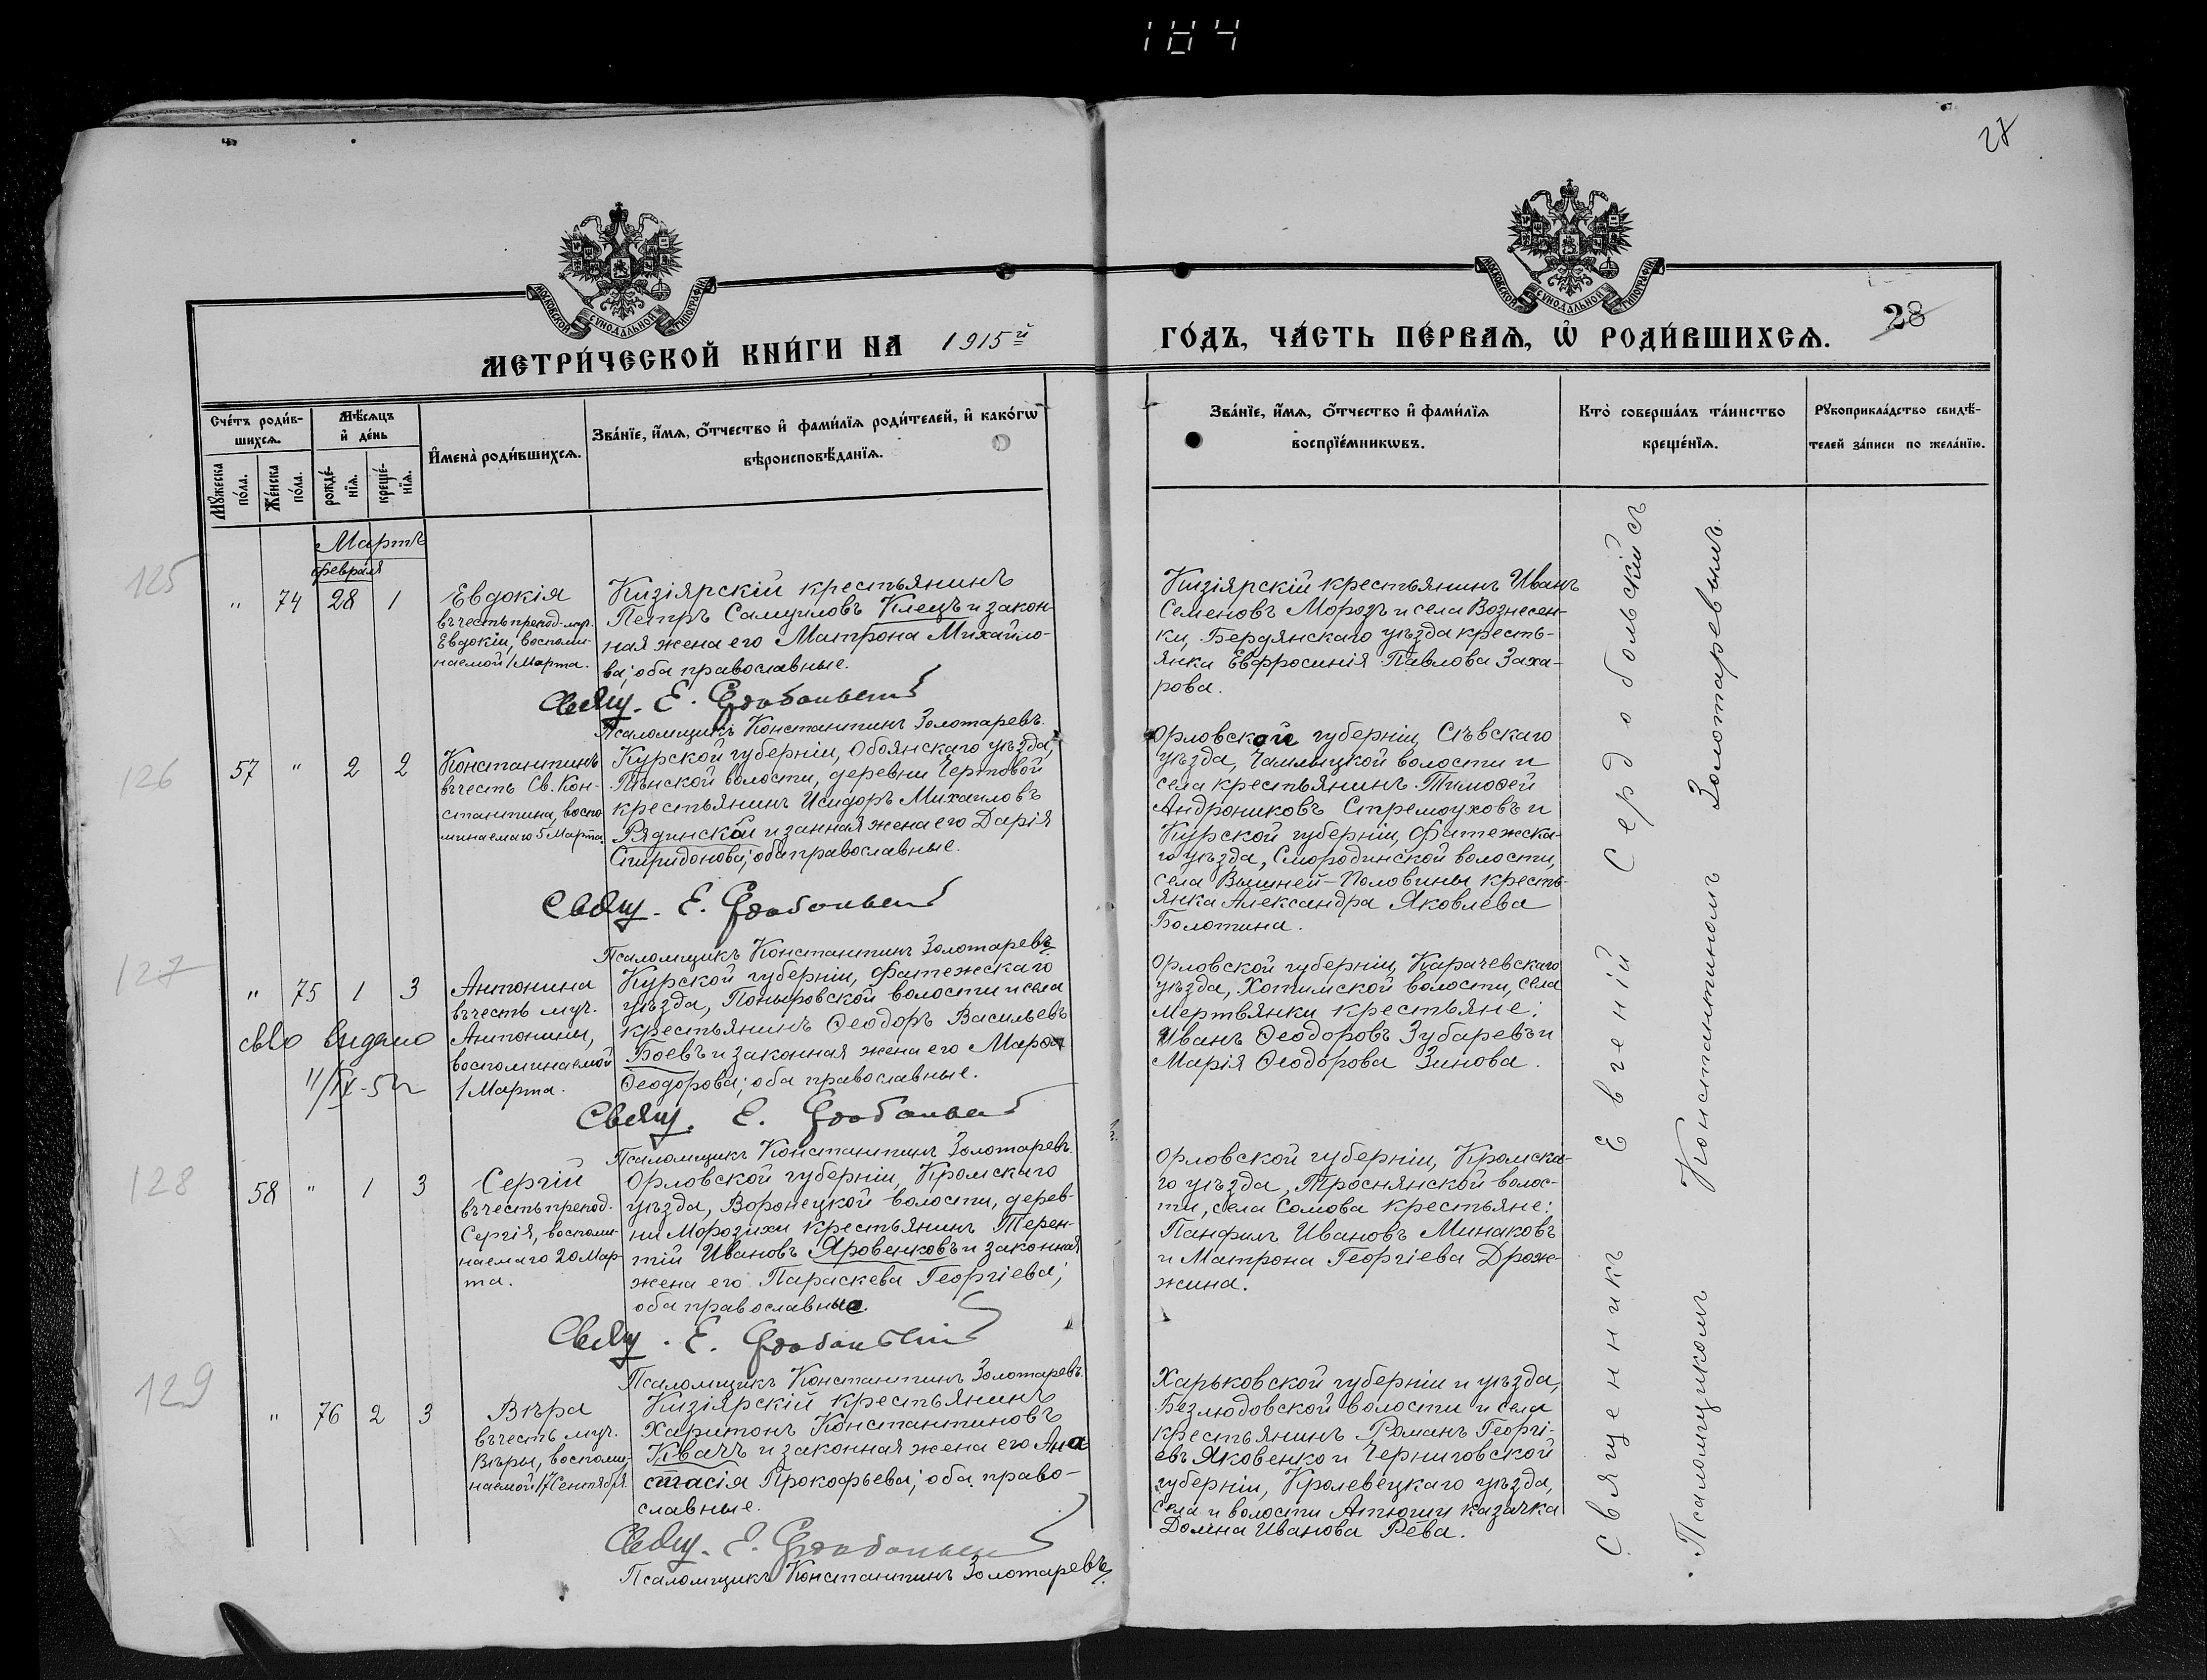 184
27
28
МОСКОВСКОЙ СѴНОДАЛЬНОЙ ТИПОГРАФІИ
МОСКОВСКОЙ СѴНОДАЛЬНОЙ ТИПОГРАФІИ
МЕТРИ́ЧЕСКОЙ КНИ́ГИ НА 1915й ГО́ДЪ, ЧА́СТЬ ПЕ́РВАѦ, Ѡ҆ РОДИ́ВШИХСѦ.
Сче́тъ роди́в-
шихсѧ.
Мꙋ́жеска
по́ла.
Же́нска
по́ла.
Мѣ́сѧцъ
и҆ де́нь
рожде́-
нїѧ.
креще́-
нїѧ.
И҆мена̀ роди́вшихсѧ.
Зва́нїе, и҆́мѧ, ѻ҆́тчество и҆ фами́лїѧ роди́телей, и҆ како́гѡ
вѣроисповѣ́данїѧ.
Зва́нїе, и҆́мѧ, ѻ҆́тчество и҆ фами́лїѧ
воспрїе́мникѡвъ.
Кто̀ соверша́лъ та́инство
креще́нїѧ.
Рꙋкоприкла́дство свидѣ́-
телей за́писи по жела́нїю.
Мартъ
февраля
125
" 74 28 1
Евдокія
въ честь препод-муч.
Евдокіи, воспоми-
наемой 1 Марта.
Кизіярскій крестьянинъ
Петръ Самуиловъ Клецъ и закон-
ная жена его Матрона Михайло-
ва; оба православные.
Свящ. Е. Сердобольскій
Псаломщикъ Константинъ Золотаревъ.
Кизіярскій крестьянинъ Иванъ
Семеновъ Морозъ и села Вознесен-
ки, Бердянскаго уѣзда кресть-
янки Евфросинія Павлова Заха-
рова.
126
57 " 2 2
Константинъ
въ честь Св. Кон-
стантина, воспо-
минаемаго 5 Марта
Курской губерніи, Обоянскаго уѣзда,
Пѣнской волости, деревни Чертовой
крестьянинъ Исидоръ Михаиловъ
Рядинской и занная жена его Дарія
Спиридонова; оба православные.
Свящ. Е. Сердобольскій
Псаломщикъ Константинъ Золотаревъ
Орловской губерніи, Сѣвскаго
уѣзда, Чамлыцкой волости и
села крестьянинъ Тимофей
Андрониковъ Стремоуховъ и
Курской губерніи, Фатежска-
го уѣзда, Смородинской волости,
села Вышней-Половины кресть-
янка Александра Яковлева
Болотина.
127
" 75 1 3
Антонина
въ честь муч.
Антонины,
воспоминаемой
1 Марта.
св-во видано
11/IX-52
Курской губерніи, Фатежскаго
уѣзда, Поныровской волости и села
крестьянинъ Ѳеодоръ Васильевъ
Боевъ и законная жена его Марѳа
Ѳеодорова; оба православные.
Свящ. Е. Сердобольскій
Псаломщикъ Константинъ Золотаревъ.
Орловской губерніи, Карачевскаго
уѣзда, Хотимской волости, села
Мертвянки крестьяне:
Иванъ Ѳеодоровъ Зубаревъ и
Марія Ѳеодорова Зинова.
128
58 " 1 3
Сергій
въ честь препод.
Сергія, воспоми-
наемаго 20 Мар-
та.
Орловской губерніи, Кромскаго
уѣзда, Воронецкой волости, дерев-
ни Морозихи крестьянинъ Терен-
тій Ивановъ Яровенковъ и законная
жена его Параскева Георгіева;
оба православные.
Свящ. Е. Сердобольскій
Псаломщикъ Константинъ Золотаревъ.
Орловской губерніи, Кромска-
го уѣзда, Троснянской волос-
ти, села Сомова крестьяне:
Панфилъ Ивановъ Минаковъ
и Матрона Георгіева Дрож-
жина.
129
" 76 2 3
Вѣра
въ честь муч.
Вѣры, воспоми-
наемой 17 Сентября.
Кизіярскій крестьянинъ
Харитонъ Константиновъ
Квачъ и законная жена его Ана
стасія Прокофьева; оба право-
славные.
Свящ. Е. Сердобольскій
Псаломщикъ Константинъ Золотаревъ.
Харьковской губерніи и уѣзда,
Безлюдовской волости и села
крестьянинъ Романъ Георгі-
евъ Яковенко и Черниговской
губерніи, Кролевецкаго уѣзда,
села и волости Атюши казачка
Домна Иванова Рева.
Священникъ Евгеній Сердобольскій съ
Псаломщикомъ Константиномъ Золотаревымъ.